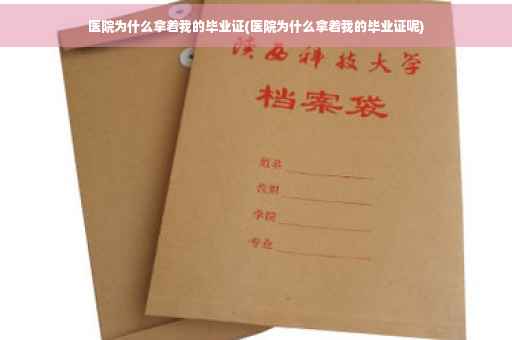 医院为什么拿着我的毕业证(医院为什么拿着我的毕业证呢)
陕西科技大学
档案袋
姓名
学院
专业